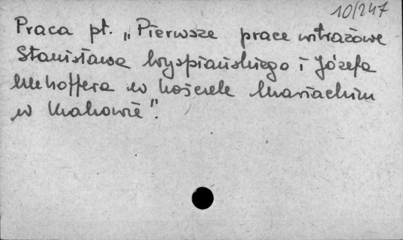 10/247
Praca pt. „Pierwsze prace witrażowe
Stanisława Wyspiańskiego i Józefa
Mehoffera w kościele Mariackim
w Krakowie".